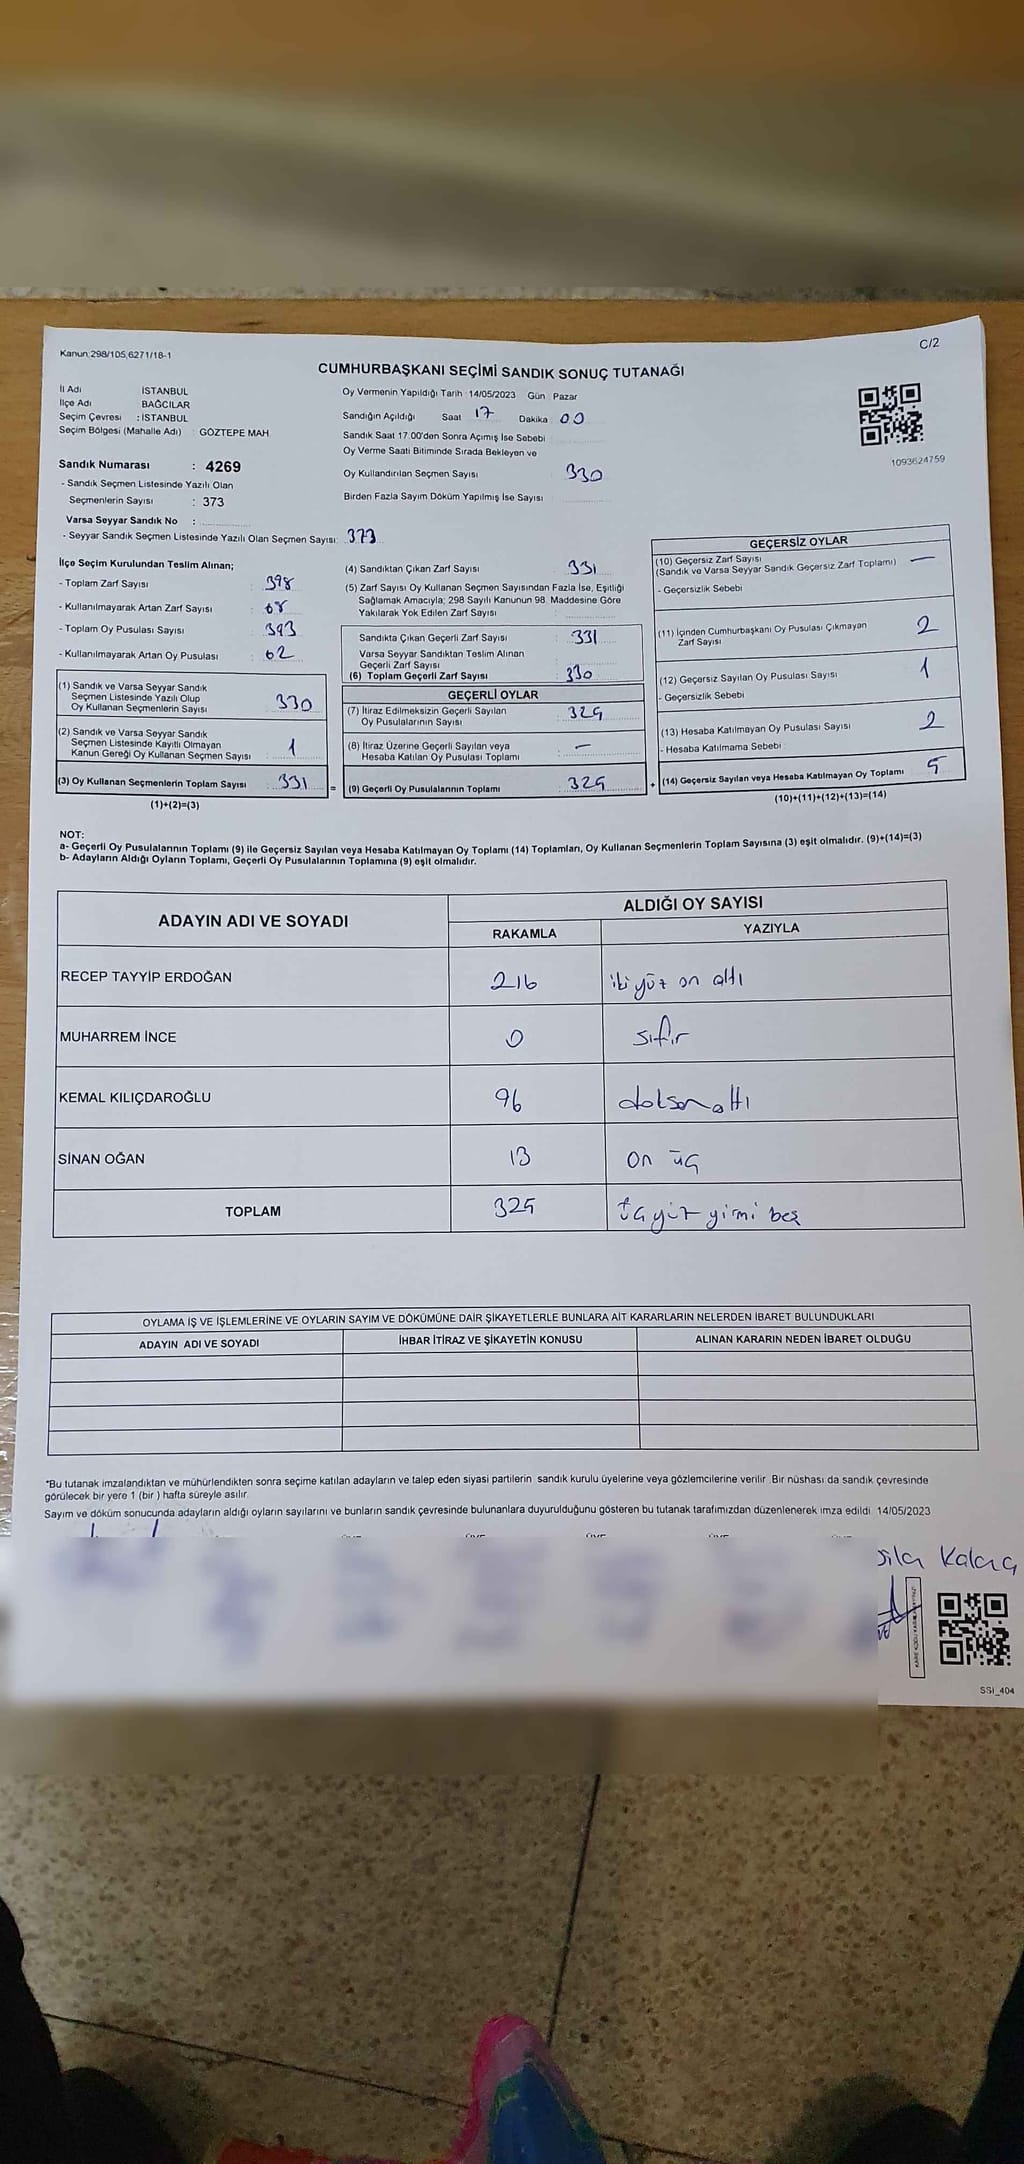 Kanun;298/105,6271/18-1
C/2
CUMHURBAŞKANI SEÇİMİ SANDIK SONUÇ TUTANAĞI
İl Adı İSTANBUL
İlçe Adı BAĞCILAR
Seçim Çevresi : İSTANBUL
Seçim Bölgesi (Mahalle Adı) GÖZTEPE MAH.
Sandık Numarası : 4269
- Sandık Seçmen Listesinde Yazılı Olan
Seçmenlerin Sayısı : 373
Varsa Seyyar Sandık No :
- Seyyar Sandık Seçmen Listesinde Yazılı Olan Seçmen Sayısı: 373
Oy Vermenin Yapıldığı Tarih :14/05/2023 Gün Pazar
Sandığın Açıldığı Saat 17 Dakika 00
Sandık Saat 17.00'den Sonra Açımış İse Sebebi
Oy Verme Saati Bitiminde Sırada Bekleyen ve
Oy Kullandırılan Seçmen Sayısı 330
Birden Fazla Sayım Döküm Yapılmış İse Sayısı
1093624759
İlçe Seçim Kurulundan Teslim Alınan;
- Toplam Zarf Sayısı : 398
- Kullanılmayarak Artan Zarf Sayısı : 68
- Toplam Oy Pusulası Sayısı : 393
- Kullanılmayarak Artan Oy Pusulası : 62
(1) Sandık ve Varsa Seyyar Sandık
Seçmen Listesinde Yazılı Olup
Oy Kullanan Seçmenlerin Sayısı 330
(2) Sandık ve Varsa Seyyar Sandık
Seçmen Listesinde Kayıtlı Olmayan
Kanun Gereği Oy Kullanan Seçmen Sayısı 1
(3) Oy Kullanan Seçmenlerin Toplam Sayısı 331
(1)+(2)=(3)
=
(4) Sandıktan Çıkan Zarf Sayısı 331
(5) Zarf Sayısı Oy Kullanan Seçmen Sayısından Fazla İse, Eşitliği
Sağlamak Amacıyla; 298 Sayılı Kanunun 98. Maddesine Göre
Yakılarak Yok Edilen Zarf Sayısı
Sandıkta Çıkan Geçerli Zarf Sayısı 331
Varsa Seyyar Sandıktan Teslim Alınan
Geçerli Zarf Sayısı
(6) Toplam Geçerli Zarf Sayısı : 330
GEÇERLİ OYLAR
(7) İtiraz Edilmeksizin Geçerli Sayılan
Oy Pusulalarının Sayısı : 325
(8) İtiraz Üzerine Geçerli Sayılan veya
Hesaba Katılan Oy Pusulası Toplamı : —
(9) Geçerli Oy Pusulalarının Toplamı : 325
+
GEÇERSİZ OYLAR
(10) Geçersiz Zarf Sayısı —
(Sandık ve Varsa Seyyar Sandık Geçersiz Zarf Toplamı)
- Geçersizlik Sebebi
(11) İçinden Cumhurbaşkanı Oy Pusulası Çıkmayan
Zarf Sayısı 2
(12) Geçersiz Sayılan Oy Pusulası Sayısı 1
- Geçersizlik Sebebi
(13) Hesaba Katılmayan Oy Pusulası Sayısı 2
- Hesaba Katılmama Sebebi
(14) Geçersiz Sayılan veya Hesaba Katılmayan Oy Toplamı 5
(10)+(11)+(12)+(13)=(14)
NOT:
a- Geçerli Oy Pusulalarının Toplamı (9) ile Geçersiz Sayılan veya Hesaba Katılmayan Oy Toplamı (14) Toplamları, Oy Kullanan Seçmenlerin Toplam Sayısına (3) eşit olmalıdır. (9)+(14)=(3)
b- Adayların Aldığı Oyların Toplamı, Geçerli Oy Pusulalarının Toplamına (9) eşit olmalıdır.
ADAYIN ADI VE SOYADI
ALDIĞI OY SAYISI
RAKAMLA YAZIYLA
RECEP TAYYİP ERDOĞAN 216 iki yüz on altı
MUHARREM İNCE 0 sıfır
KEMAL KILIÇDAROĞLU 96 doksan altı
SİNAN OĞAN 13 on üç
TOPLAM 325 üç yüz yirmi beş
OYLAMA İŞ VE İŞLEMLERİNE VE OYLARIN SAYIM VE DÖKÜMÜNE DAİR ŞİKAYETLERLE BUNLARA AİT KARARLARIN NELERDEN İBARET BULUNDUKLARI
ADAYIN ADI VE SOYADI İHBAR İTİRAZ VE ŞİKAYETİN KONUSU ALINAN KARARIN NEDEN İBARET OLDUĞU
*Bu tutanak imzalandıktan ve mühürlendikten sonra seçime katılan adayların ve talep eden siyasi partilerin sandık kurulu üyelerine veya gözlemcilerine verilir. Bir nüshası da sandık çevresinde
görülecek bir yere 1 (bir ) hafta süreyle asılır.
Sayım ve döküm sonucunda adayların aldığı oyların sayılarını ve bunların sandık çevresinde bulunanlara duyurulduğunu gösteren bu tutanak tarafımızdan düzenlenerek imza edildi 14/05/2023
SSI_404